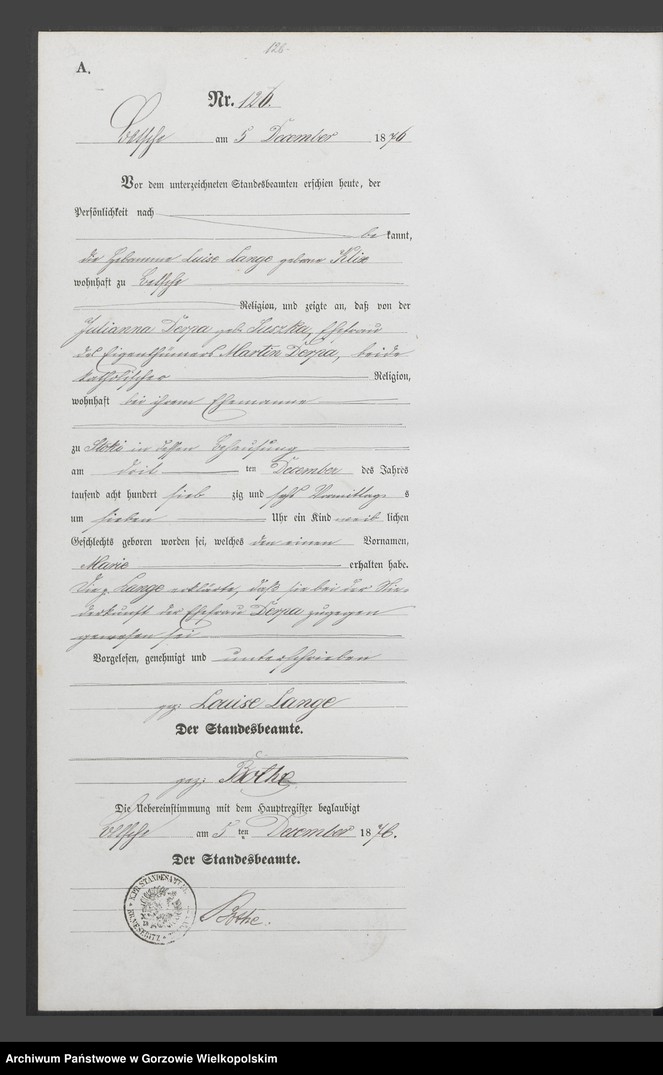 126.
A.
Nr. 126.
Betsche am 5 December 1876
Vor dem unterzeichneten Standesbeamten erschien heute, der
Persönlichkeit nach
bekannt,
die Hebamme Luise Lange geborne Klix
wohnhaft zu Betsche
Religion, und zeigte an, daß von der
Julianna Derpa geb. Ehefrau
des Eigenthümers Martin Derpa, beide
katholischer Religion,
wohnhaft bei ihrem Ehemanne
zu Stoki in dessen Behausung
am ten December des Jahres
tausend acht hundert siebzig und sechs Vormittags
um sieben Uhr ein Kind weiblichen
Geschlechts geboren worden sei, welches den einen Vornamen,
Marie erhalten habe.
Die p. Lange erklärte, daß sie bei der Nie-
derkunft der Ehefrau Derpa zugegen
gewesen sei
Vorgelesen, genehmigt und unterschrieben
gez: Louise Lange
Der Standesbeamte.
gez: Bothe
Die Uebereinstimmung mit dem Hauptregister beglaubigt
Betsche am 5 ten December 1876.
Der Standesbeamte.
KPR. STANDESAMT
Bothe.
Archiwum Państwowe w Gorzowie Wielkopolskim